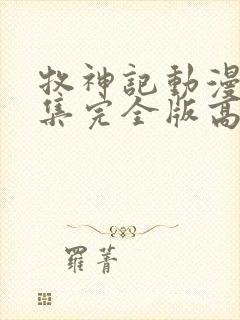 牧神記動漫
集完全版高
羅菁